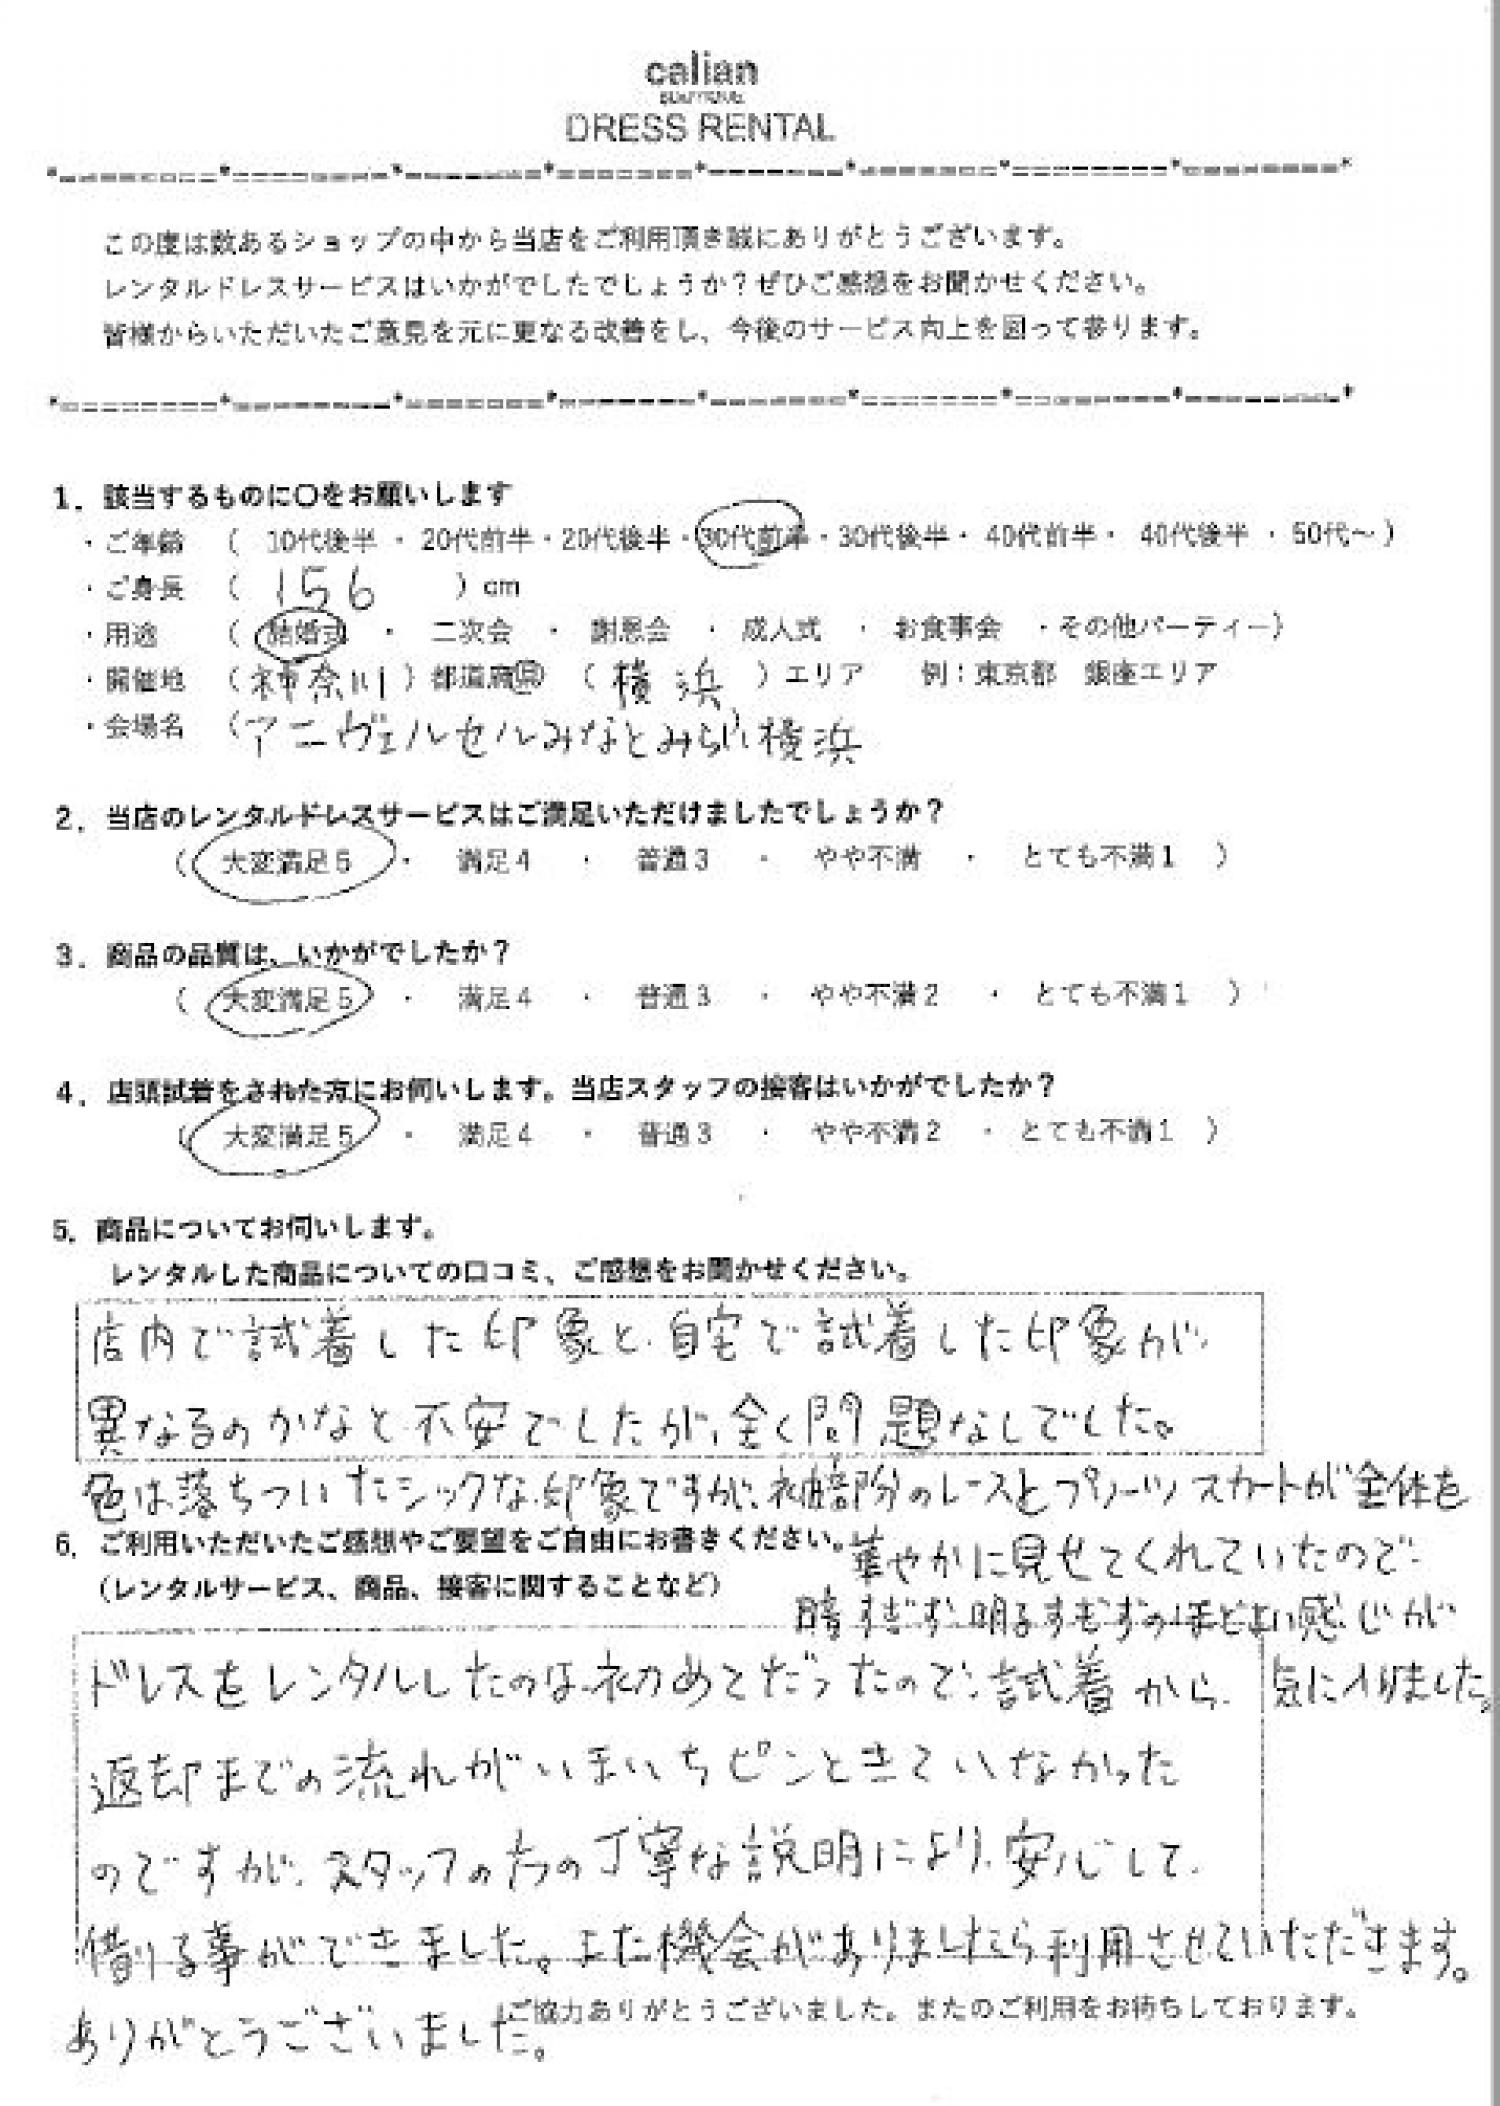 calian
BOUTIQUE
DRESS RENTAL
この度は数あるショップの中から当店をご利用頂き誠にありがとうございます。
レンタルドレスサービスはいかがでしたでしょうか？ぜひご感想をお聞かせください。
皆様からいただいたご意見を元に更なる改善をし、今後のサービス向上を図って参ります。
1．該当するものに〇をお願いします
・ご年齢 （ 10代後半 ・ 20代前半・20代後半・30代前半・30代後半・ 40代前半・ 40代後半 ・ 50代～）
・ご身長 （ 156 ）cm
・用途 （ 結婚式 ・ 二次会 ・ 謝恩会 ・ 成人式 ・ お食事会 ・その他パーティー）
・開催地 （神奈川）都道府県 （ 横浜 ）エリア 例：東京都 銀座エリア
・会場名 （アニヴェルセルみなとみらい横浜
2．当店のレンタルドレスサービスはご満足いただけましたでしょうか？
（ 大変満足5 ・ 満足4 ・ 普通3 ・ やや不満 ・ とても不満1 ）
3．商品の品質は、いかがでしたか？
（ 大変満足5 ・ 満足4 ・ 普通3 ・ やや不満2 ・ とても不満1 ）
4．店頭試着をされた方にお伺いします。当店スタッフの接客はいかがでしたか？
（ 大変満足5 ・ 満足4 ・ 普通3 ・ やや不満2 ・ とても不満1 ）
5．商品についてお伺いします。
レンタルした商品についての口コミ、ご感想をお聞かせください。
店内で試着した印象と、自宅で試着した印象が
異なるのかなと不安でしたが、全く問題なしでした。
色は落ちついたシックな印象ですが、袖部分のレースとプリーツスカートが全体を
華やかに見せてくれていたので、
暗すぎず明るすぎずのほどよい感じが
気に入りました。
6．ご利用いただいたご感想やご要望をご自由にお書きください。
（レンタルサービス、商品、接客に関することなど）
ドレスをレンタルしたのは、初めてだったので、試着から、
返却までの流れがいまいちピンときていなかった
のですが、スタッフの方の丁寧な説明により、安心して、
借りる事ができました。また機会がありましたら利用させていただきます。
ありがとうございました。
ご協力ありがとうございました。またのご利用をお待ちしております。